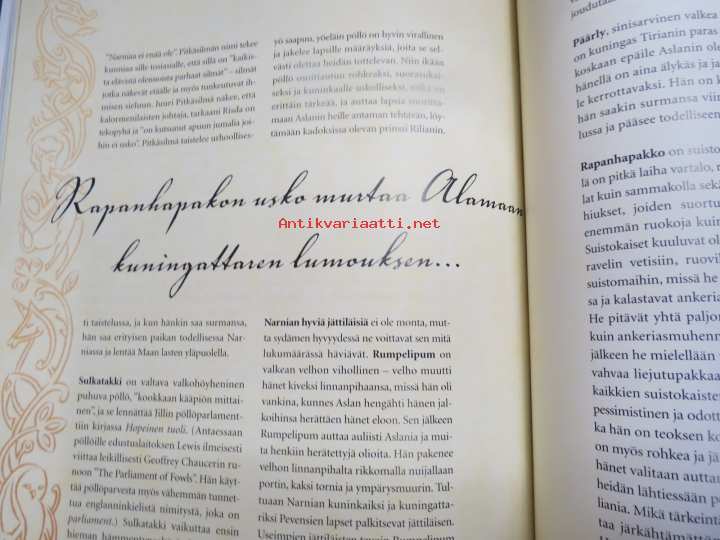 "Narniaa ei enää ole". Pitkäsilmän nimi tekee
kunniaa sille tosiasialle, että sillä on "kaikis-
ta elävistä olennoista parhaat silmät" – silmät
jotka näkevät etäälle ja myös tunkeutuvat ih-
misen sieluun. Juuri Pitkäsilmä näkee, että
kalormenilaisten johtaja, tarkaani Risda on
tekopyhä ja "on kutsunut apuun jumalia joi-
hin ei usko". Pitkäsilmä taistelee urhoollises-
yö saapuu, yöeläin pöllö on hyvin virallinen
ja jakelee lapsille määräyksiä, joita se sel-
västi olettaa heidän tottelevan. Niin ikään
pöllö osoittautuu rohkeaksi, suorasukai-
seksi ja kuninkaalle uskolliseksi,
erittäin tärkeää, ja auttaa lapsia suoritta-
maan Aslanin heille antaman tehtävän, löy-
tämään kadoksissa olevan prinssi Rilianin.
Rapanhapakon usko murtaa Alamaan
Antikvariaatti.net
kuningattaren lumouksen...
ti taistelussa, ja kun hänkin saa surmansa,
hän saa erityisen paikan todellisessa Nar-
niassa ja lentää Maan lasten yläpuolella.
Sulkatakki on valtava valkohöyheninen
puhuva pöllö, "kookkaan kääpiön mittai-
nen", ja se lennättää Jillin pöllöparlament-
tiin kirjassa Hopeinen tuoli. (Antaessaan
pöllöille edustuslaitoksen Lewis ilmeisesti
viittaa leikillisesti Geoffrey Chaucerin ru-
noon "The Parliament of Fowls". Hän käyt-
tää pöllöparvesta myös vähemmän tunnet-
tua englanninkielistä nimitystä, joka on
parliament.) Sulkatakki vaikuttaa ensin
hieman
Narnian hyviä jättiläisiä ei ole monta, mut-
ta sydämen hyvyydessä ne voittavat sen mitä
lukumäärässä häviävät. Rumpelipum on
valkean velhon vihollinen – velho muutti
hänet kiveksi linnanpihaansa, missä hän oli
vankina, kunnes Aslan hengähti hänen jal-
koihinsa herättäen hänet eloon. Sen jälkeen
Rumpelipum auttaa auliisti Aslania ja mui-
ta henkiin herätettyjä olioita. Hän pakenee
velhon linnanpihalta rikkomalla nuijallaan
portin, kaksi tornia ja ympärysmuurin. Tul-
tuaan Narnian kuninkaiksi ja kuningatta-
riksi Pevensien lapset palkitsevat jättiläisen.
Useimpien jättiläisten tavoin Rumpelipum
joudutaa
Päärly, sinisarvinen valkea
on kuningas Tirianin paras
koskaan epäile Aslanin ole
hänellä on aina älykäs ja ja
le kerrottavaksi. Hän on k
hän saakin surmansa viim
lussa ja pääsee todelliseen
Rapanhapakko on suisto
lä on pitkä laiha vartalo,
lat kuin sammakolla sekä
hiukset, joiden suortu
enemmän ruokoja kuin
Suistokaiset kuuluvat ol
ravelin vetisiin, ruovil
suistomaihin, missä he
sa ja kalastavat ankeria
He pitävät yhtä paljon
kuin ankeriasmuhenn
jälkeen he mielellään
vahvaa liejutupakkaa
kaikkien suistokaisten
pessimistinen ja odott
ka hän on teoksen ko
on myös rohkea ja jä
hänet valitaan auttam
heidän lähtiessään p
liania. Mikä tärkeint
taa järkähtämättä